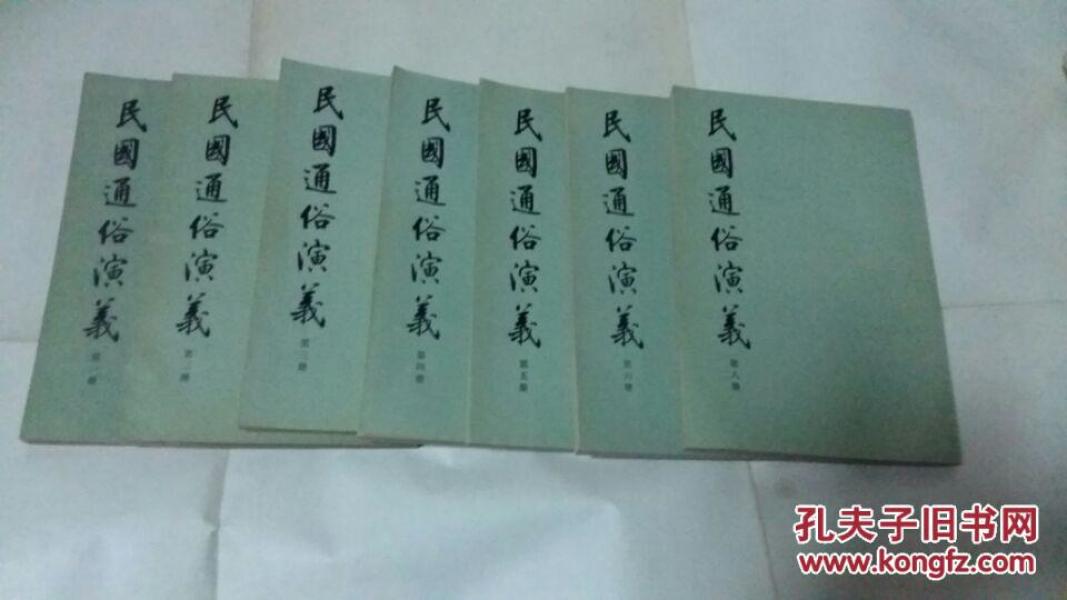 民國通俗演義
第一册
民國通俗演義
第二册
民國通俗演義
第三册
民國通俗演義
第四册
民國通俗演義
第五册
民國通俗演義
第六册
民國通俗演義
第八册
孔夫子旧书网
www.kongfz.com